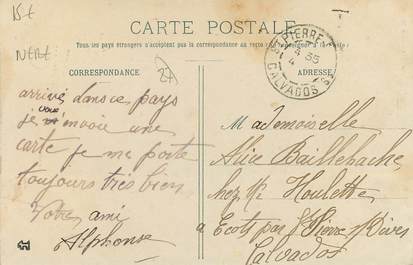 15€
NERE
CARTE POSTALE
Tous les pays étrangers n'acceptent pas la correspondance au recto (se renseigner à la poste)
CORRESPONDANCE
27
ADRESSE
ST PIERRE
4 35
4
CALVADOS
arrivé dans ce pays
je vous envoie une
carte je me porte
toujours très bien
Votre ami
Alphonse
Mademoiselle
Alice Baillebache
chez Mr Houlette
à Ecots par St Pierre s/ Dives
Calvados